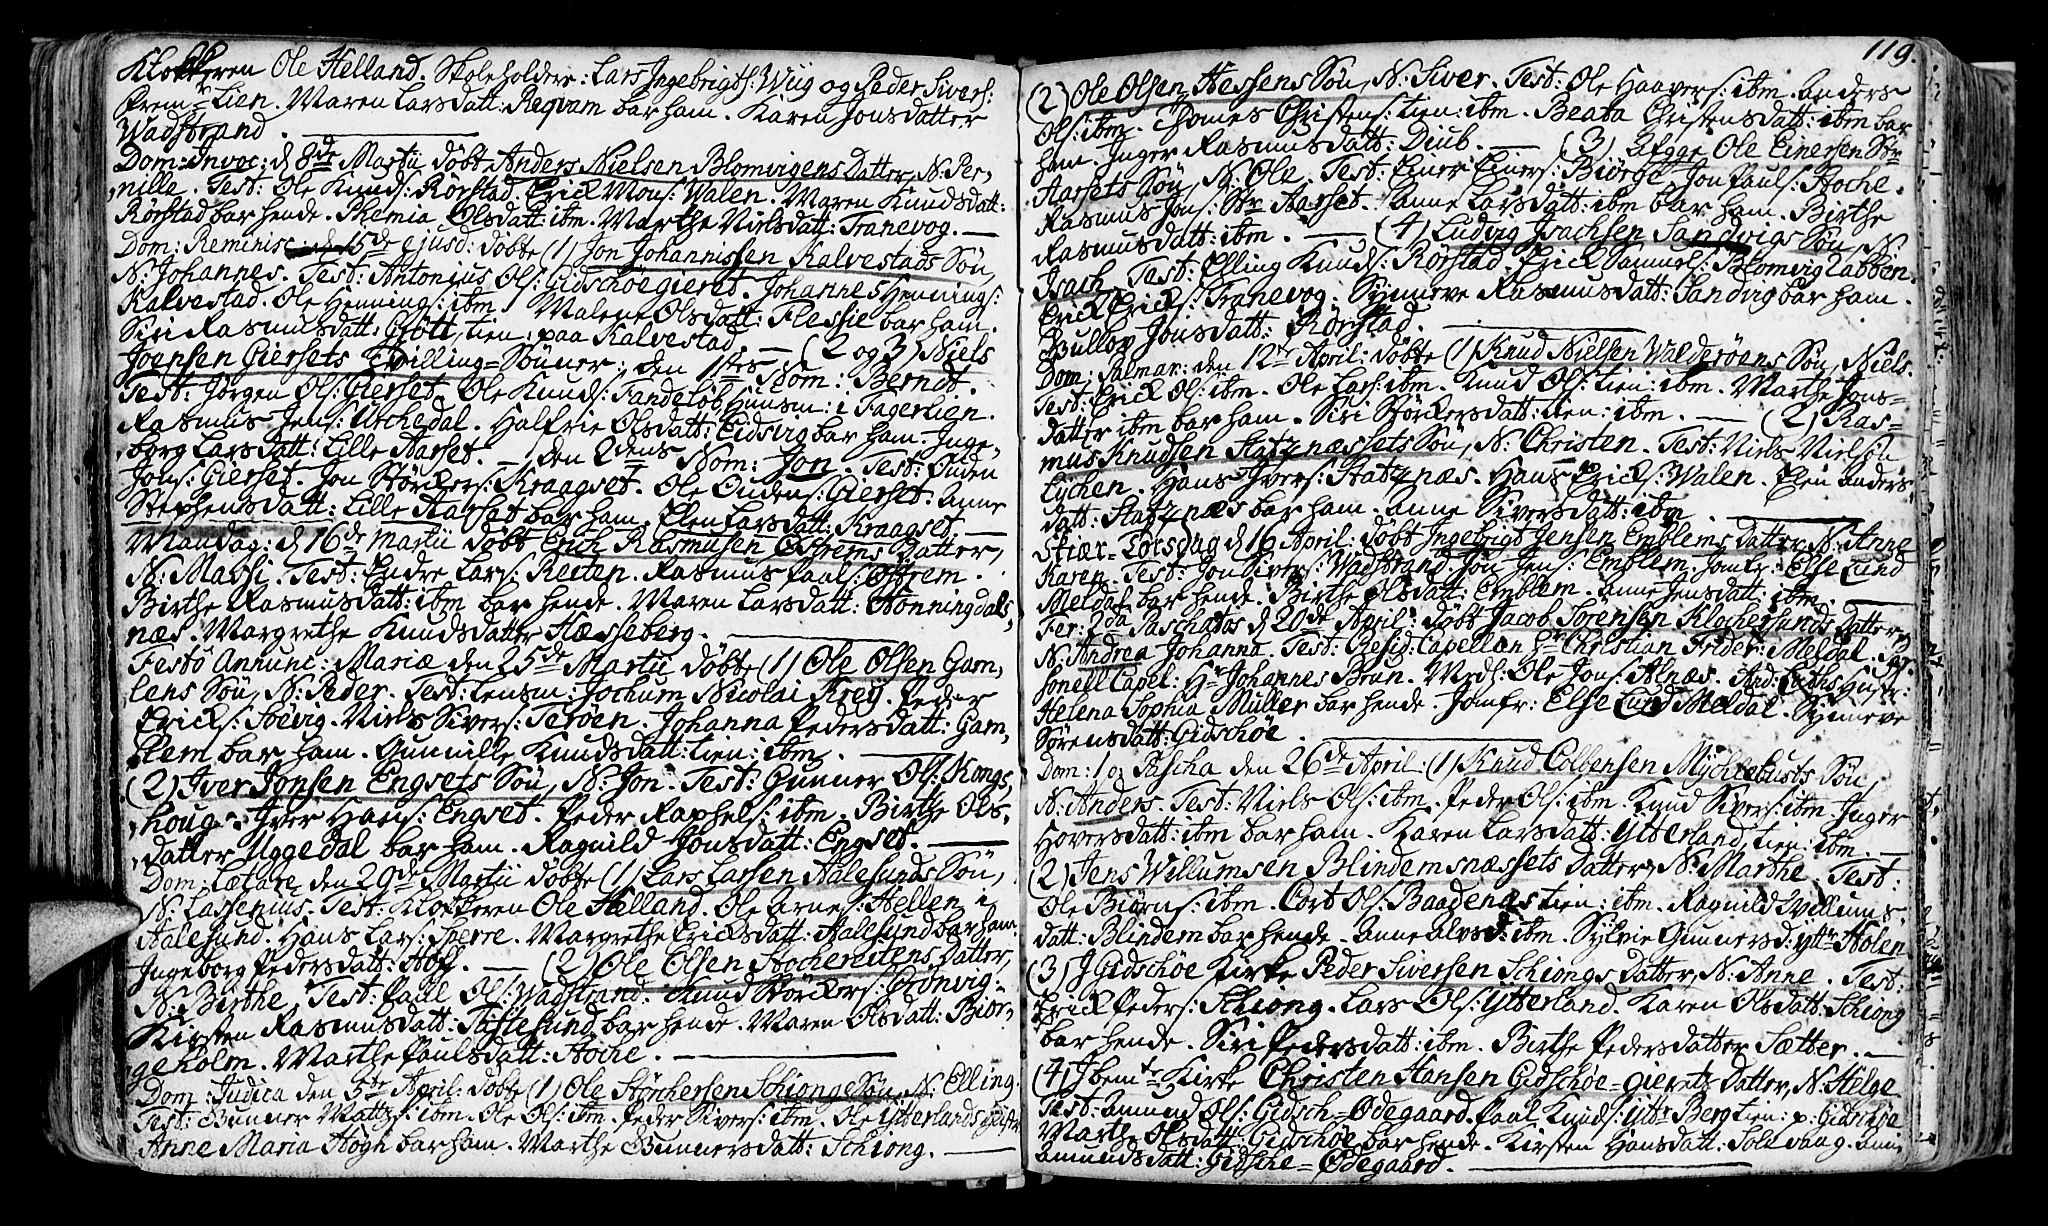 Klokkeren Ole Helland. Skoleholdere: Lars Ingebrigts: Wiig og Peder Sivers:
Frem: Lien. Maren Larsdatt: Reqvam bar ham. Karen Jonsdatter
Wadstrand.
Dom: Invoc: d 8de Martii döbt Anders Nielsen Blomvigens Datter, N: Per-
nille. Test: Ole Knuds: Rörstad. Erick Mons: Walen. Maren Knudsdatt:
Rörstad bar hende. Phemia Olsdatt: ibm. Marthe Nielsdatt: Tranevog.
Dom: Reminisc: den 15de ejusd: döbte (1) Jon Johannissen Kalvestads Sön,
N: Johannes. Test: Antonius Ols: Gidschöegieret. Johannes Hennings:
Kalvestad. Ole Hennings: ibm. Malene Olsdatt: Flessie bar ham.
Siri Rasmusdatt: Gjött, tien: paa Kalvestad. (2 og 3) Niels
Joensen Giersets Tvilling-Sönner; den 1stes Nom: Berndt.
Test: Jörgen Ols: Gierset. Ole Knuds: Tandeløb, Huusm: i Fagerlien.
Rasmus Jens: Urchedal. Halfrie Olsdatt: Eidsvig bar ham. Inge-
borg Larsdatt: Lille Aarset. den 2dens Nom: Jon. Test: Ouden
Jons: Gierset. Jon Störckers: Kraagset. Ole Oudens: Gierset. Anne
Stephensdatt: Lille Aarset bar ham. Elen Larsdatt: Kraagset.
Mandag: d 16de Martii döbt Erich Rasmusen Östrems Datter,
N: Massi. Test: Endre Lars: Reiten. Rasmus Pauls: Östrem.
Birthe Rasmusdatt: ibm bar hende. Maren Larsdatt: Honningdals-
næs. Margrethe Knudsdatter Hæsseberg.
Festo Annunc: Mariæ den 25de Martii döbte (1) Ole Olsen Gam-
lems Sön, N: Peder. Test: Lensm: Jochum Nicolai Krey. Peder
Ericks: Soevig. Niels Sivers: Teröen. Johanna Pedersdatt: Gam-
lem bar ham. Gunnille Knudsdatt: tien: ibm.
(2) Iver Jonsen Engsets Sön, N: Jon. Test: Gunner Ols: Kongs-
houg. Iver Hans: Engset. Peder Raphels: ibm. Birthe Ols-
datter Uggedal bar ham. Ragnild Jonsdatt: Engset.
Dom: Lætare den 29de Martii döbte (1) Lars Larsen Aalesunds Sön,
N: Lassenius. Test: Klokkeren Ole Helland. Ole Arnes: Hellen i
Aalesund. Hans Lars: Sperre. Margrethe Ericksdatt: Aalesund bar ham.
Ingeborg Pedersdatt: Hoff. (2) Ole Olsen Hochereitens Datter,
N: Birthe. Test: Paul Ols: Wadstrand. Knud Störckers: Grönvig.
Kirsten Rasmusdatt: Taftesund bar hende. Maren Olsdatt: Biör-
geholm. Marthe Paulsdatt: Hoche.
Dom: Judica den 5te April: döbte (1) Ole Störchersen Schionge Sön, N: Elling.
Test: Bunner Matts: ibm. Ole Ols: ibm. Peder Sivers: ibm. Ole Ytterlands
Anne Maria Høgh bar ham. Marthe Bunnersdatt: Schiong.
119.
(2) Ole Olsen Hessens Sön, N: Siver. Test: Ole Haavers: ibm. Anders
Ols: ibm. Thomes Christens: tien: ibm. Beata Christensdatt: ibm bar
ham. Inger Rasmusdatt: Diub. (3) Afgge Ole Einersen Str
Aarsets Sön, N: Ole. Test: Einer Einers: Biörge. Jon Pauls: Hoche.
Rasmus Jons: Str Aarset. Anne Larsdatt: ibm bar ham. Birthe
Rasmusdatt: ibm. (4) Ludvig Isachsen Sandvigs Sön, N:
Isach. Test: Elling Knuds: Rörstad. Erick Samuels: Blomvig Labben.
Erick Ericks: Tranevog. Synneve Rasmusdatt: Sandvig bar ham.
Bullov Jonsdatt: Rörstad.
Dom: Palmar: den 12te April: döbte (1) Knud Nielsen Walderöens Sön, Niels.
Test: Erick Ols: ibm. Ole Lars: ibm. Knud Ols: tien: ibm. Marthe Jons-
datter ibm bar ham. Siri Störckersdatt: tien: ibm. (2) Ras-
mus Knudsen Statznæssets Sön, N: Christen. Test: Niels Nielsön
Lychen. Hans Ivers: Statznæs. Hans Ericks: Walen. Elen Anders-
datt: Statznæs bar ham. Anne Siversdatt: ibm.
Skiær-Torsdag d 16 April: döbt Ingebrigt Jensen Emblems Datter, N: Anne
Karen. Test: Jon Sivers: Wadstrand. Jon Jens: Emblem. Jomfr: Else Lund
Meldal bar hende. Birthe Olsdatt: Emblem. Anne Jensdatt: ibm.
Fer: 2da Paschatos d 20de April: döbt Jacob Sörensen Klochersunds Datter,
N: Andrea Johanna. Test: Resid: Capellan Hr Christian Frider: Meldal.
sonell Capel: Hr Johannes Brun. Mad: Ole Jons: Alnæs. And: Hustr:
Helena Sophia Müller bar hende. Jomfr: Else Lund Meldal. Synneve
Sörensdatt: Gidschöe.
Dom: 1 p: Pascha den 26de April: (1) Knud Colbensen Myhrebusts Sön,
N: Anders. Test: Niels Ols: ibm. Peder Ols: ibm. Knud Sivers: ibm. Inger
Hoversdatt: ibm bar ham. Karen Larsdatt: Ytterland, tien: ibm.
(2) Jens Willumsen Blindemsnæssets Datter, N: Marthe. Test:
Ole Biörns: ibm. Cort Ols: Baadenæs tien: ibm. Ragnild Willums-
datt: Blindem bar hende. Anne Alvsd: ibm. Sylvie Gunnersd: Yttr Holen.
(3) I Gidschöe Kirke Peder Siversen Schiongs Datter, N: Anne. Test:
Erick Peders: Schiong. Lars Ols: Ytterland. Karen Olsdatt: Schiong
bar hende. Siri Pedersdatt: ibm. Birthe Pedersdatter Sætter.
(4) I bemte Kirke Christen Hansen Gidschöe-gierets Datter, N: Helge
Test: Amund Ols: Gidsch-Ödegaard. Paul Knuds: Yttr Berg tien: p: Gidschöe
Marthe Olsdatt: Gidschöe bar hende. Kirsten Hansdatt: Solevaag. Anne
Amundsdatt: Gidsche-Ödegaard.